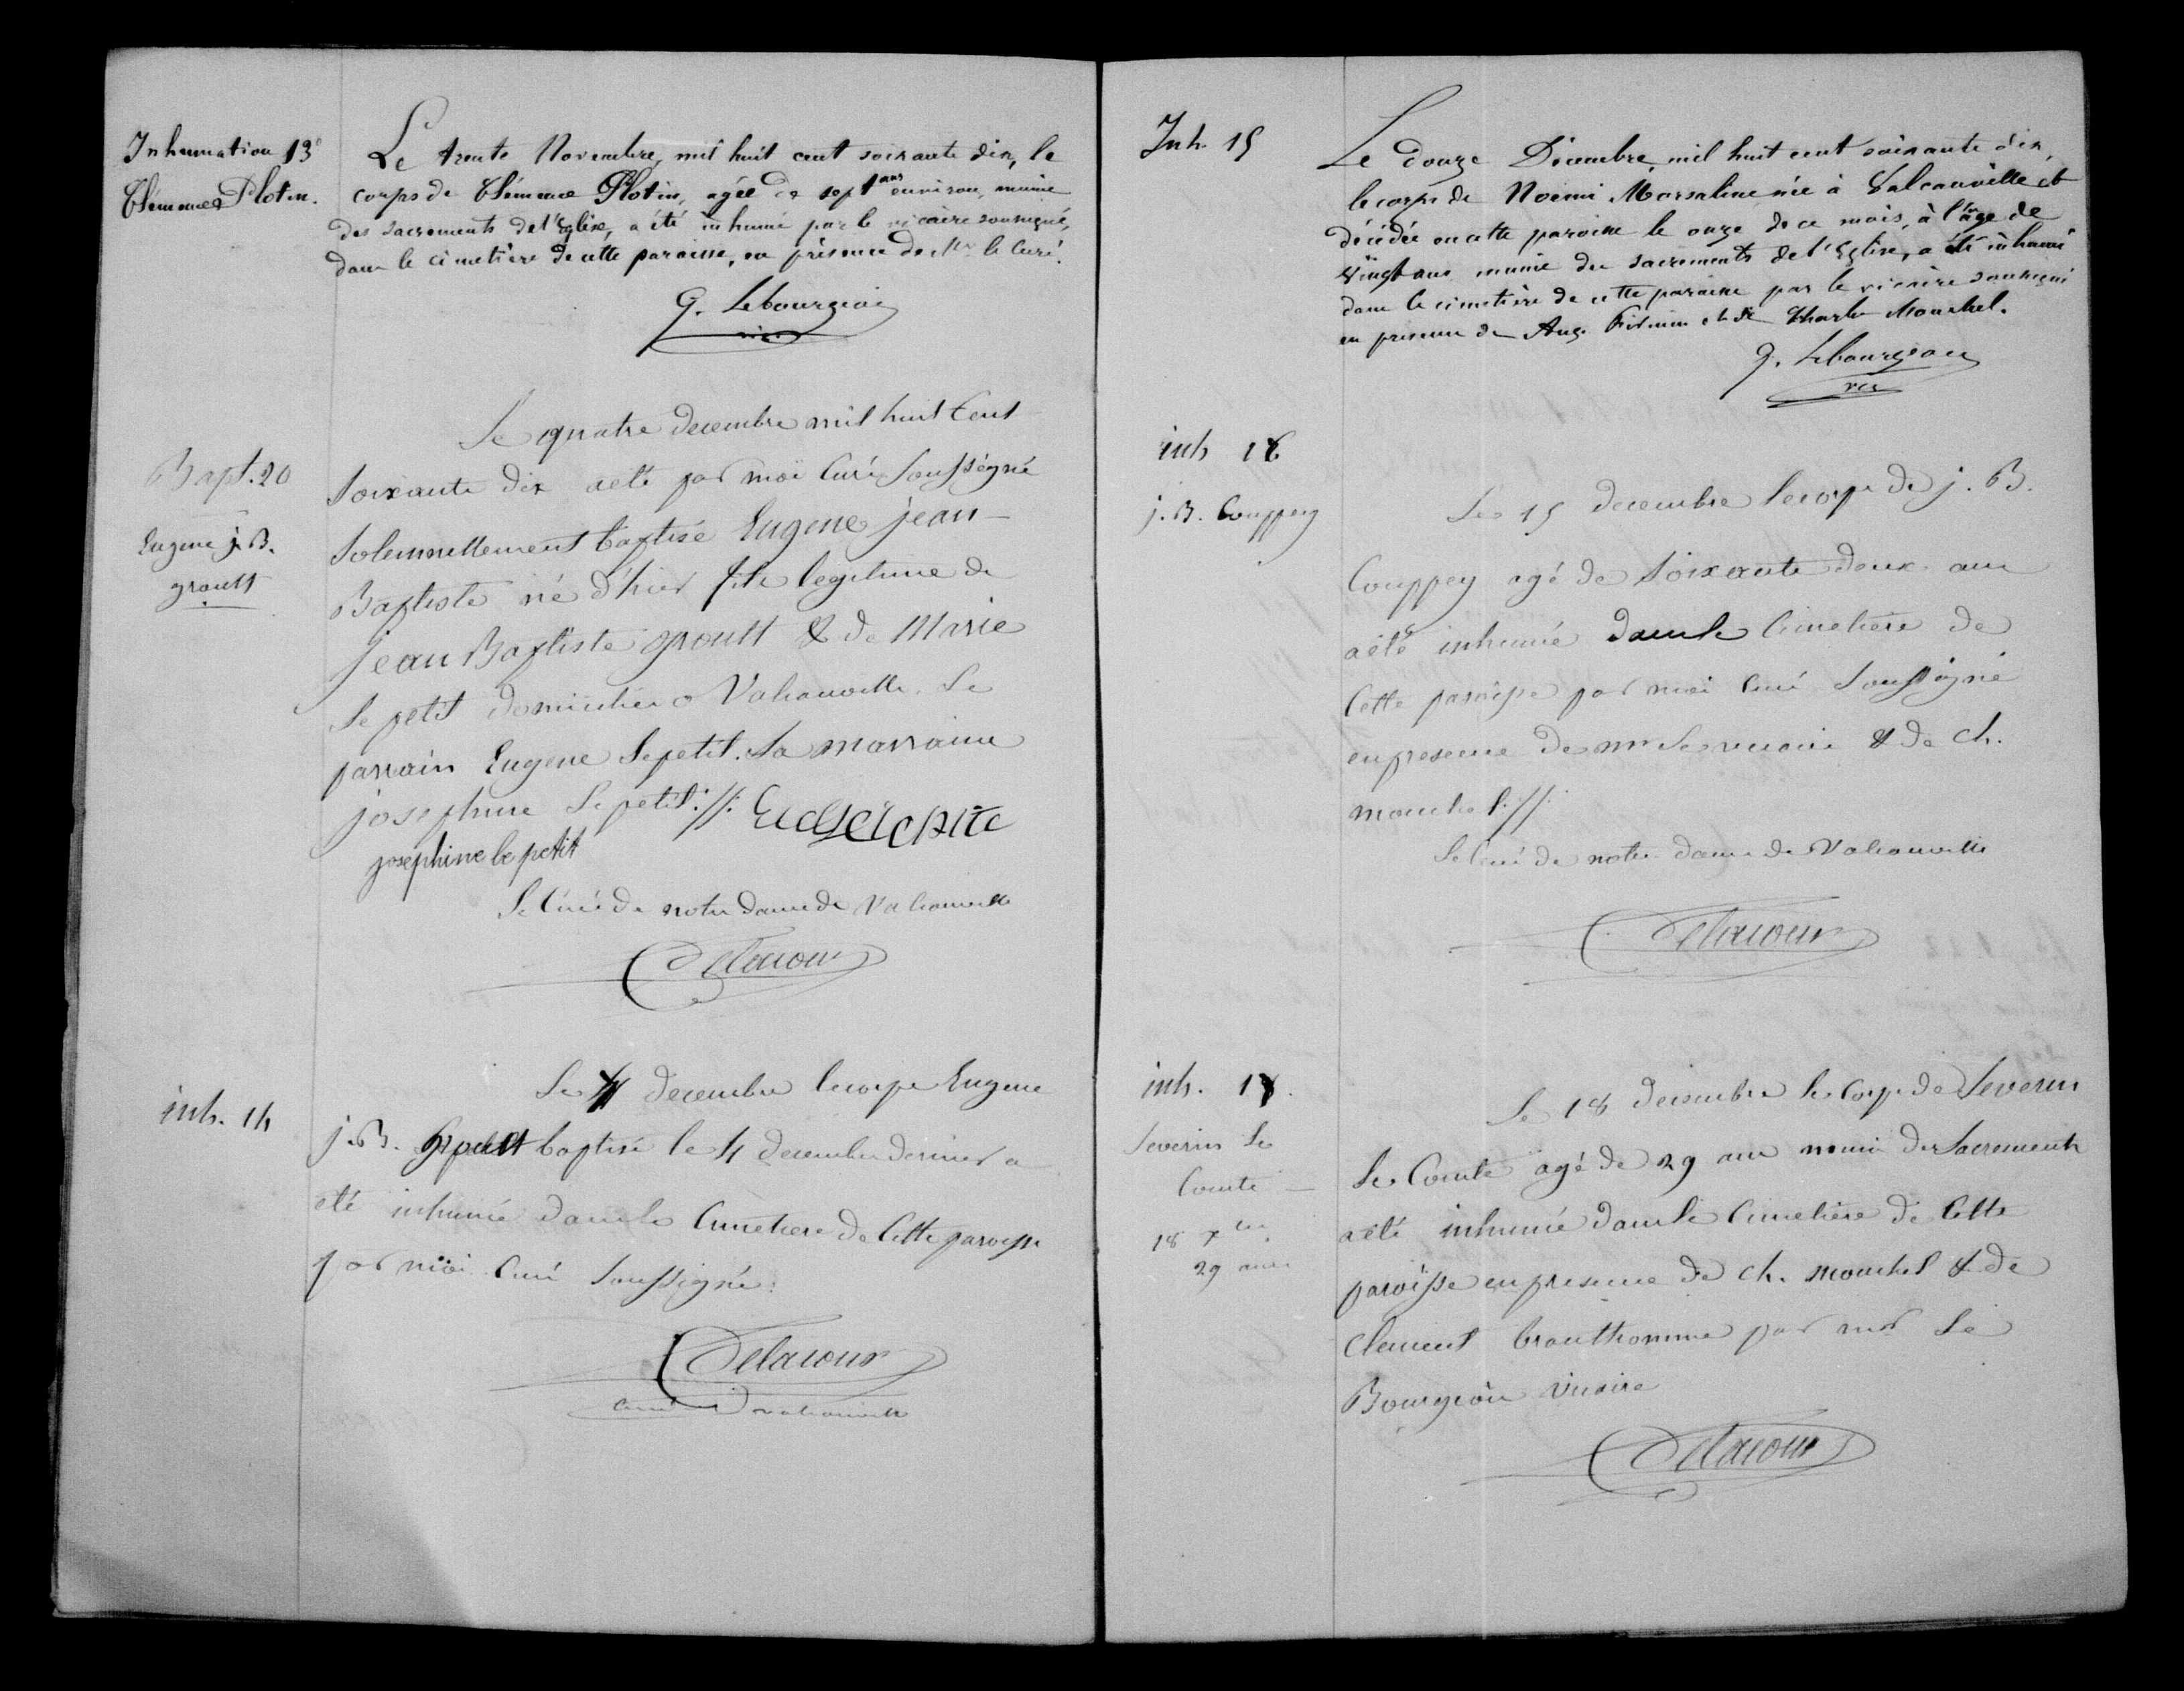 Inhumation 13e
Clémence Plotin.
Le trente Novembre, mil huit cent soixante dix, le
corps de Clémence Plotin, agée de sept ans environ, munie
des sacrements de l'Eglise, a été inhumé par le vicaire soussigné,
dans le cimetière de cette paroisse, en présence de Mr le Curé.
G. Lebourgeois
vic
Bapt. 20
Eugene j. B.
groult
Le quatre decembre mil huit Cent
soixante dix a eté par moi Curé Soussigné
Solennellement baptisé Eugene jean-
Baptiste né d'hier fils legitime de
jean Baptiste groult & de Marie
Le petit domiciliés a Valcanville. Le
parrain Eugene Lepetit. La marraine
josephine Le petit
josephine le petit
Le Curé de notre dame de Valcanville
Delacour
inh. 14
Le decembre le corps Eugene
j. B. groult baptisé le 4 decembre dernier a
eté inhumé dans le Cimetiere de Cette paroisse
par moi Curé Soussigné.
Delacour
Curé valcanville
Inh. 15
Le douze Décembre, mil huit cent soixante dix,
le corps de Noémi Marsaline née à Valcanville et
décédée en cette paroisse le onze de ce mois, à l'âge de
vingt ans munie des sacrements de l'Eglise, a été inhumé
dans le cimetière de cette paroisse par le vicaire soussigné
en présence de Aug. Firmin et de Charles Mouchel.
G. Lebourgeois
vic
inh 16
j. B. Couppey
Le 15 decembre le corps de j. B.
Couppey agé de soixante deux ans
a eté inhumé dans le Cimetiere de
Cette paroisse par moi Curé Soussigné
en presence de mr Le vicaire & de ch.
mouchel
Le Curé de notre dame de Valcanville
Delacour
inh. 17.
Severin Le
Comte
18
29 ans
Le 18 decembre le corps de Severin
Le Comte agé de 29 ans muni des Sacrements
a eté inhumé dans le Cimetière de Cette
paroisse en presence de ch. mouchel & de
clement brauthomme par mr Le
Bourgeois vicaire
Delacour